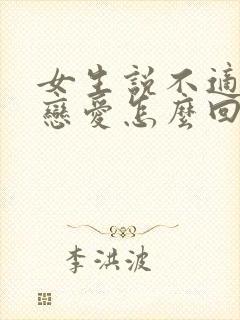 女生說不適
戀愛怎麼回
李洪波